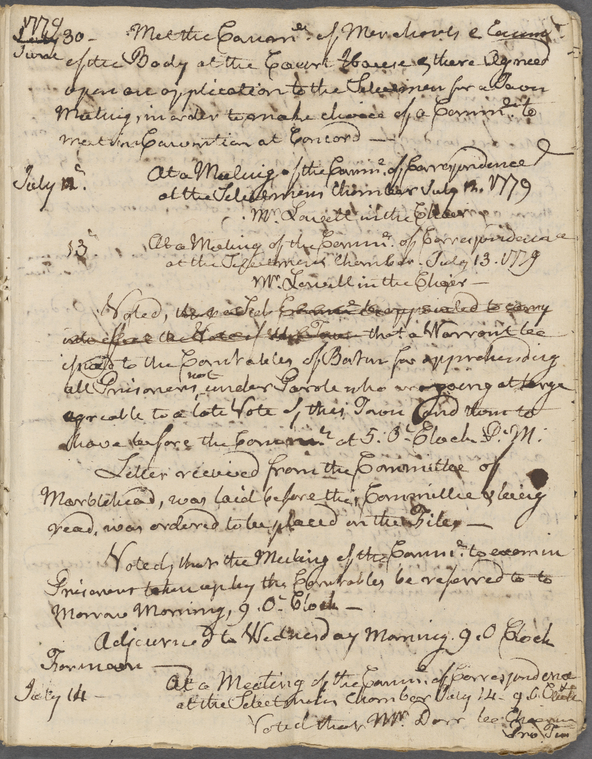 1779
June 30 - Met the Comm.ee of Merchants &
of the Body at the Court House & there agreed
upon an application to the Selectmen for a Town
Meeting, in order to make choice of a Comm.ee to
meet in Convention at Concord —
July 12. At a Meeting of the Comm.ee of Correspondence
at the Selectmens Chamber July 12. 1779
Mr. Lowell in the Chair
13 At a Meeting of the Comm.ee of Correspondence
at the Selectmens Chamber. July 13. 1779
Mr. Lowell in the Chair —
Voted, be appointed to carry
into the Vote of Town that a Warrant be
issued to the Constables of Boston for apprehending
all Prisoners, not under Parole who are going at large
agreable to a late Vote of this Town and them to
have before the Comm.ee at 5. O'Clock P. M.
Letter received from the Committee of
Marblehead, was laid before the Committee & being
read, was ordered to be placed on the Files —
Voted, that the Meeting of the Comm.ee to examin
Prisoners taken up by the Constables be referred to to
Morrow Morning, 9. O'Clock —
Adjourned to Wednesday Morning. 9. O Clock
Forenoon —
July 14 - At a Meeting of the Comm.ee of Correspondence
at the Selectmens Chamber July 14. 9 O Clock
Voted that Mr. Dorr be Chairman
Pro. Tem